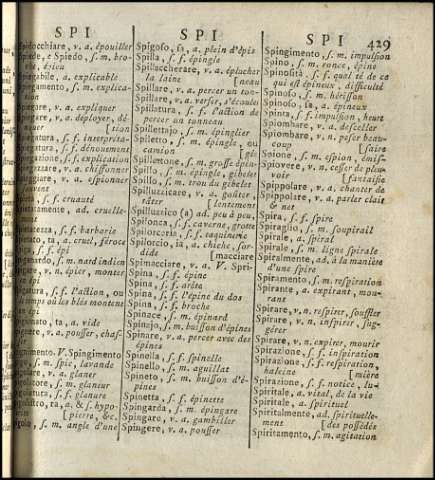 SPI
Spidocchiare, v. a. épouiller
Spiede, e Spiedo, s. m. bro-
che, épieu
Spiegabile, a. explicable
Spiegamento, s. m. explica-
tion
Spiegare, v. a. expliquer
Spiegare, v. a. déployer, dé-
[tion
interpréta-
s. f. dénouement
s. f. explication
v. a. chiffonner
v. a. espionner
souvent
s. f. cruauté
ad. cruelle-
ment
s. f. barbarie
a. cruel, féroce
s. m. épi
s. m. nard indien
v. a. épier, monter
en épi
s. f. l'action, ou
temps où les blés montent
en épi
ta, a. vide
v. a. pousser, chas-
ser
V. Spingimento
s. m. spic, lavande
v. a. glaner
s. m. glaneur
s. f. glanure
ta, a. & s. hypo-
[pierre, &c.
s. m. angle d'une
SPI
Spigoso, sa, a. plein d'épis
Spillo, s. m. épingle [neau
Spillaccherare, v. a. éplucher
la laine
Spillare, v. a. percer un ton-
Spillare, v. a. verser, s'écouler
Spillatura, s. f. l'action de
percer un tonneau
Spillettajo, s. m. épinglier
Spilletto, s. m. épingle, ou
camion [gle
Spillettone, s. m. grosse épin-
Spillo, s. m. épingle, gibelet
Spillo, s. m. trou du gibelet
Spilluzzicare, v. a. goûter,
tâter [lentement
Spilluzzico (a) ad. peu à peu,
Spilonca, s. f. caverne, grotte
Spilorceria, s. f. taquinerie
Spilorcio, ia, a. chiche, sor-
dide [macciare
Spimacciare, v. a. V. Spri-
Spina, s. f. épine
Spina, s. f. arête
Spina, s. f. l'épine du dos
Spina, s. f. broche
Spinace, s. m. épinard
Spinajo, s. m. buisson d'épines
Spinare, v. a. percer avec des
épines
Spinella, s. f. spinelle
Spinello, s. m. aguillat
Spineto, s. m. buisson d'é-
pines
Spinetta, s. f. épinette
Spingarda, s. m. épingare
Spingare, v. a. gambiller
Spingere, v. a. pousser
SPI 429
Spingimento, s. m. impulsion
Spino, s. m. ronce, épine
Spinosità, s. f. qualité de ce
qui est épineux, difficulté
Spinoso, s. m. hérisson
Spinoso, sa, a. épineux
Spinta, s. f. impulsion, heurt
Spiombare, v. a. desceller
Spiombare, v. n. peser beau-
coup [faire
Spione, s. m. espion, émis-
Spiovere, v. a. cesser de pleu-
voir [fantaisie
Spippolare, v. a. chanter de
Spippolare, v. a. parler clair
& net
Spira, s. f. spire
Spiraglio, s. m. soupirail
Spirale, a. spiral
Spirale, s. m. ligne spirale
Spiralmente, ad. à la manière
d'une spire
Spiramento, s. m. respiration
Spirante, a. expirant, mou-
rant
Spirare, v. n. respirer, souffler
Spirare, v. n. inspirer, sug-
gérer
Spirare, v. n. expirer, mourir
Spirazione, s. f. inspiration
Spirazione, s. f. respiration,
haleine [mière
Spirazione, s. f. notice, lu-
Spiritale, a. vital, de la vie
Spiritale, a. spirituel
Spiritalmente, ad. spirituelle-
ment [des possédés
Spiritamento, s. m. agitation